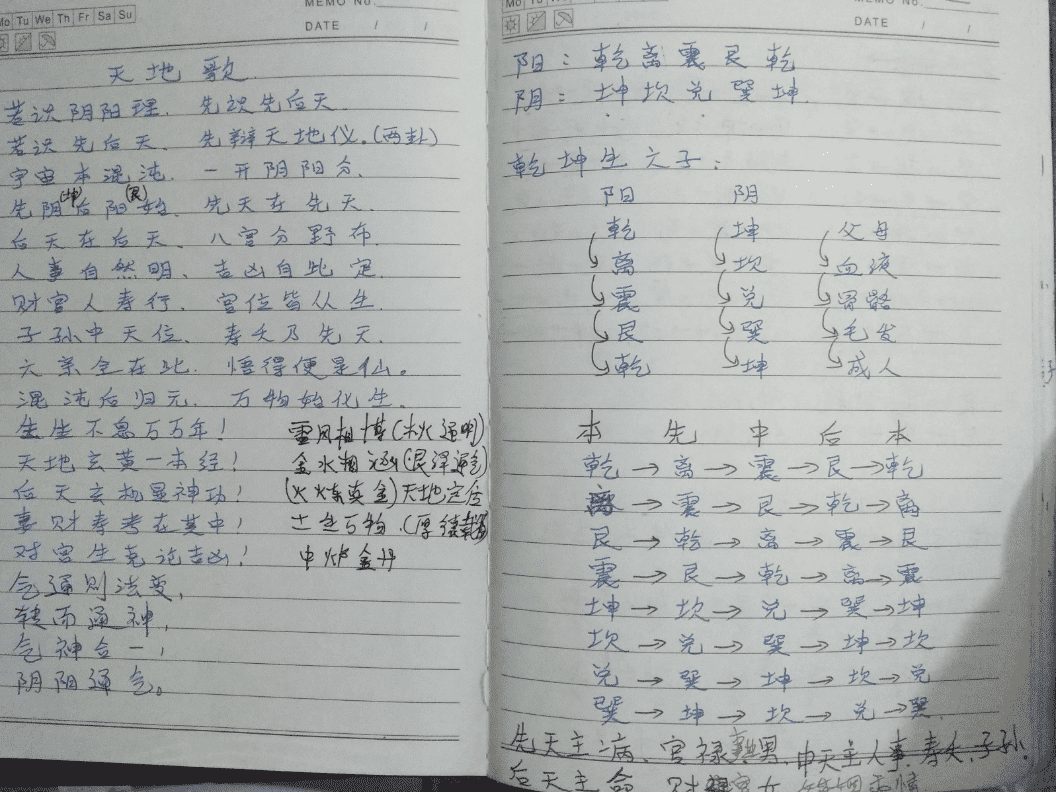 MEMO No.
Mo Tu We Th Fr Sa Su
DATE / /
天地歌
若识阴阳理、先识先后天.
若识先后天、先辩天地仪。(两卦)
宇宙本混沌.一开阴阳分.
先阴(坤)后阳(艮)始.先天在先天.
后天在后天、八宫分野布.
人事自然明、吉凶自此定.
财官人寿行.宫位皆从生.
子孙中天位.寿夭乃先天.
六亲全在此.悟得便是仙。
混沌后归元.万物始化生.
生生不息万万年!雷风相搏(木火通明)
天地玄黄一本经!金水相涵(艮泽通气)
后天玄机显神功!(火炼真金)天地定位
妻财寿考在其中!土生万物.(厚德载物)
对宫生克论吉凶!中炉金丹
气通则法变,
转而通神,
气神合一,
阴阳通气。
MEMO No.
Mo Tu
DATE / /
阳:乾离震艮乾
阴:坤坎兑巽坤.
乾坤生六子:
阳 阴
乾 坤 父母
离 坎 血液
震 兑 骨骼
艮 巽 毛发
乾 坤 成人
本 先 中 后 本
乾→离→震→艮→乾
离→震→艮→乾→离
艮→乾→离→震→艮
震→艮→乾→离→震
坤→坎→兑→巽→坤
坎→兑→巽→坤→坎
兑→巽→坤→坎→兑
巽→坤→坎→兑→巽.
先天主病、官禄 男.中天主人事.寿夭.子孙.
后天主命 财 女 婚姻